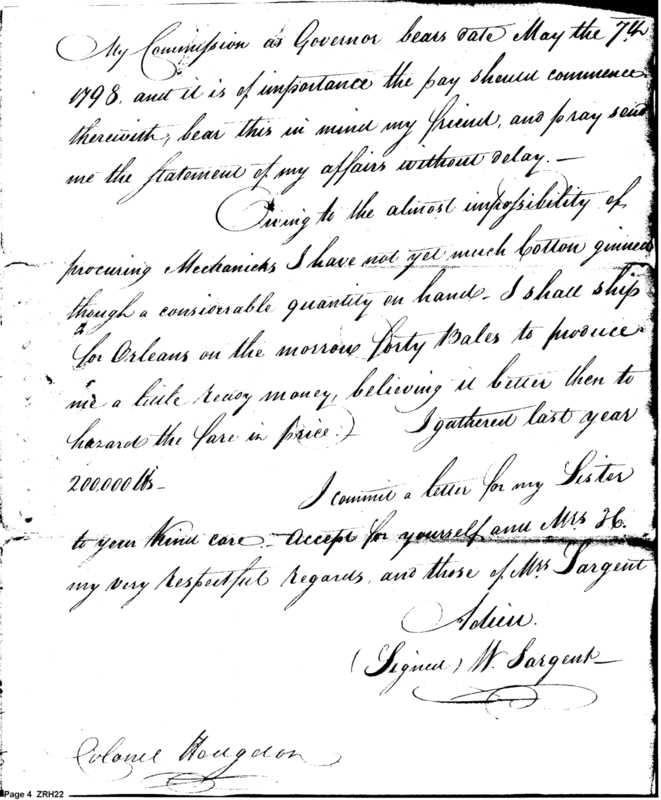 My Commission as Governor bears date May the 7th
1798. and it is of importance the pay should commence
therewith, bear this in mind my friend, and pray send
me the Statement of my affairs without delay. —
Owing to the almost impossibility of
procuring Mechanicks I have not yet much Cotton ginned
though a considerable quantity on hand - I shall ship
for Orleans on the morrow forty Bales to produce
me a little ready money, believing it better then to
hazard the fare in price.) I gathered last year
200,000 lbs —
I commit a letter for my Sister
to your kind care - accept for yourself and Mrs H.
my very respectful regards, and those of Mrs Sargent
Adieu.
(Signed) W. Sargent —
Colonel Hodgdon
Page 4 ZRH22